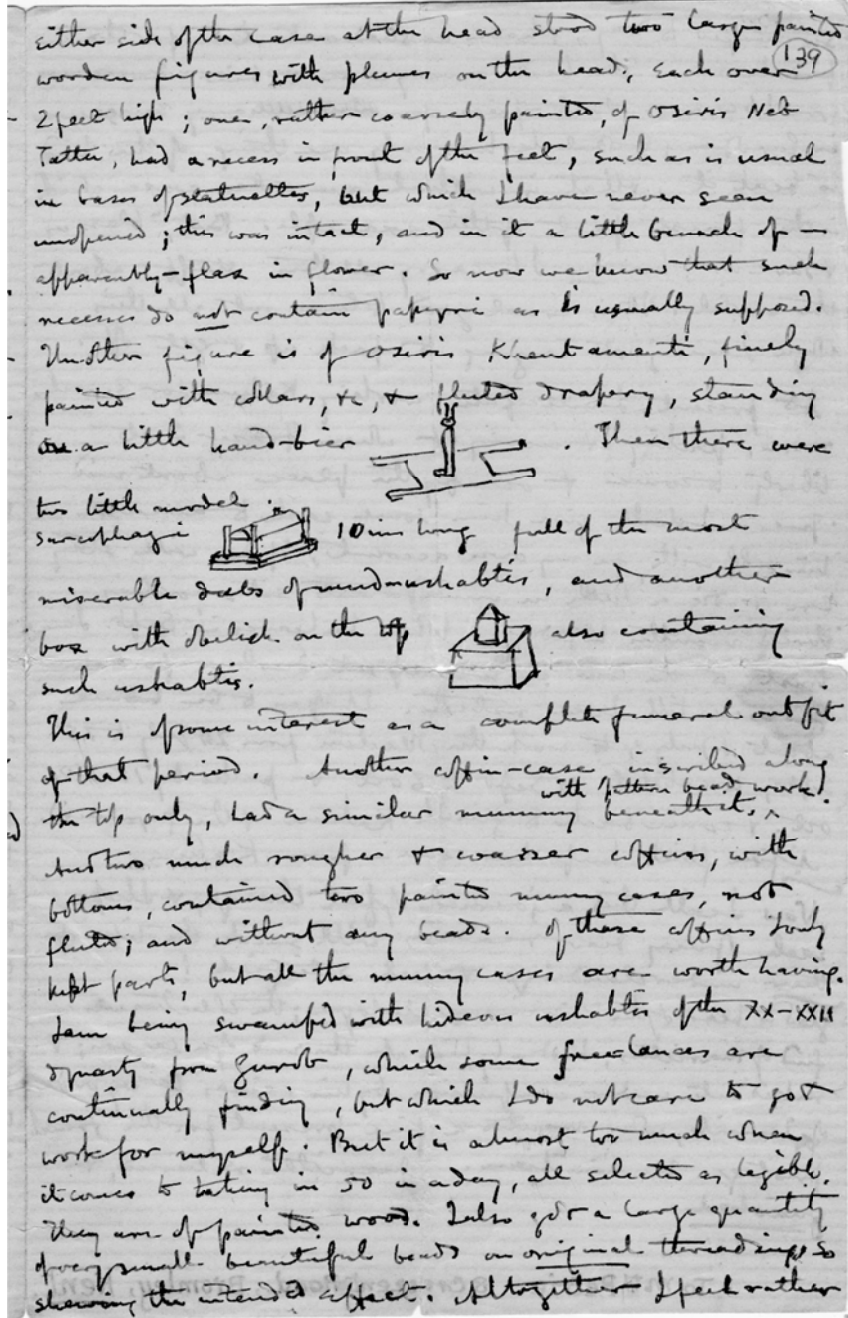 either side of the case at the head stood two large painted
139
wooden figures with plumes on the head, each over
2 feet high; one, rather coarsely painted, of Osiris Neb
Tattu, had a recess in front of the feet, such as is usual
in bases of statuettes, but which I have never seen
unopened; this was intact, and in it a little bunch of —
apparently – flax in flower. So now we know that such
recesses do not contain papyri as is usually supposed.
Another figure is of Osiris Khentamenti, finely
painted with collars, &c, & fluted drapery, standing
on a little hand-bier . Then there were
two little model
sarcophagi 10 ins long full of the most
miserable dabs of mud ushabtis, and another
box with obelisk on the top also containing
such ushabtis.
This is of some interest as a complete funeral outfit
of that period. Another coffin-case inscribed along
with pattern bead work
the top only, had a similar mummy beneath it,
And two much rougher & coarser coffins, with
bottoms, contained two painted mummy cases, not
fluted; and without any beads. Of these coffins I only
kept parts, but all the mummy cases are worth having.
I am being swamped with hideous ushabtis of the XX–XXII
dynasty from Gurob, which some freelances are
continually finding, but which I do not care to go &
work for myself. But it is almost too much when
it comes to taking in 50 in a day, all selected as legible.
They are of painted wood. I also got a large quantity
of very small beautiful beads on original threadings so
shewing the intended effect. Altogether I feel rather